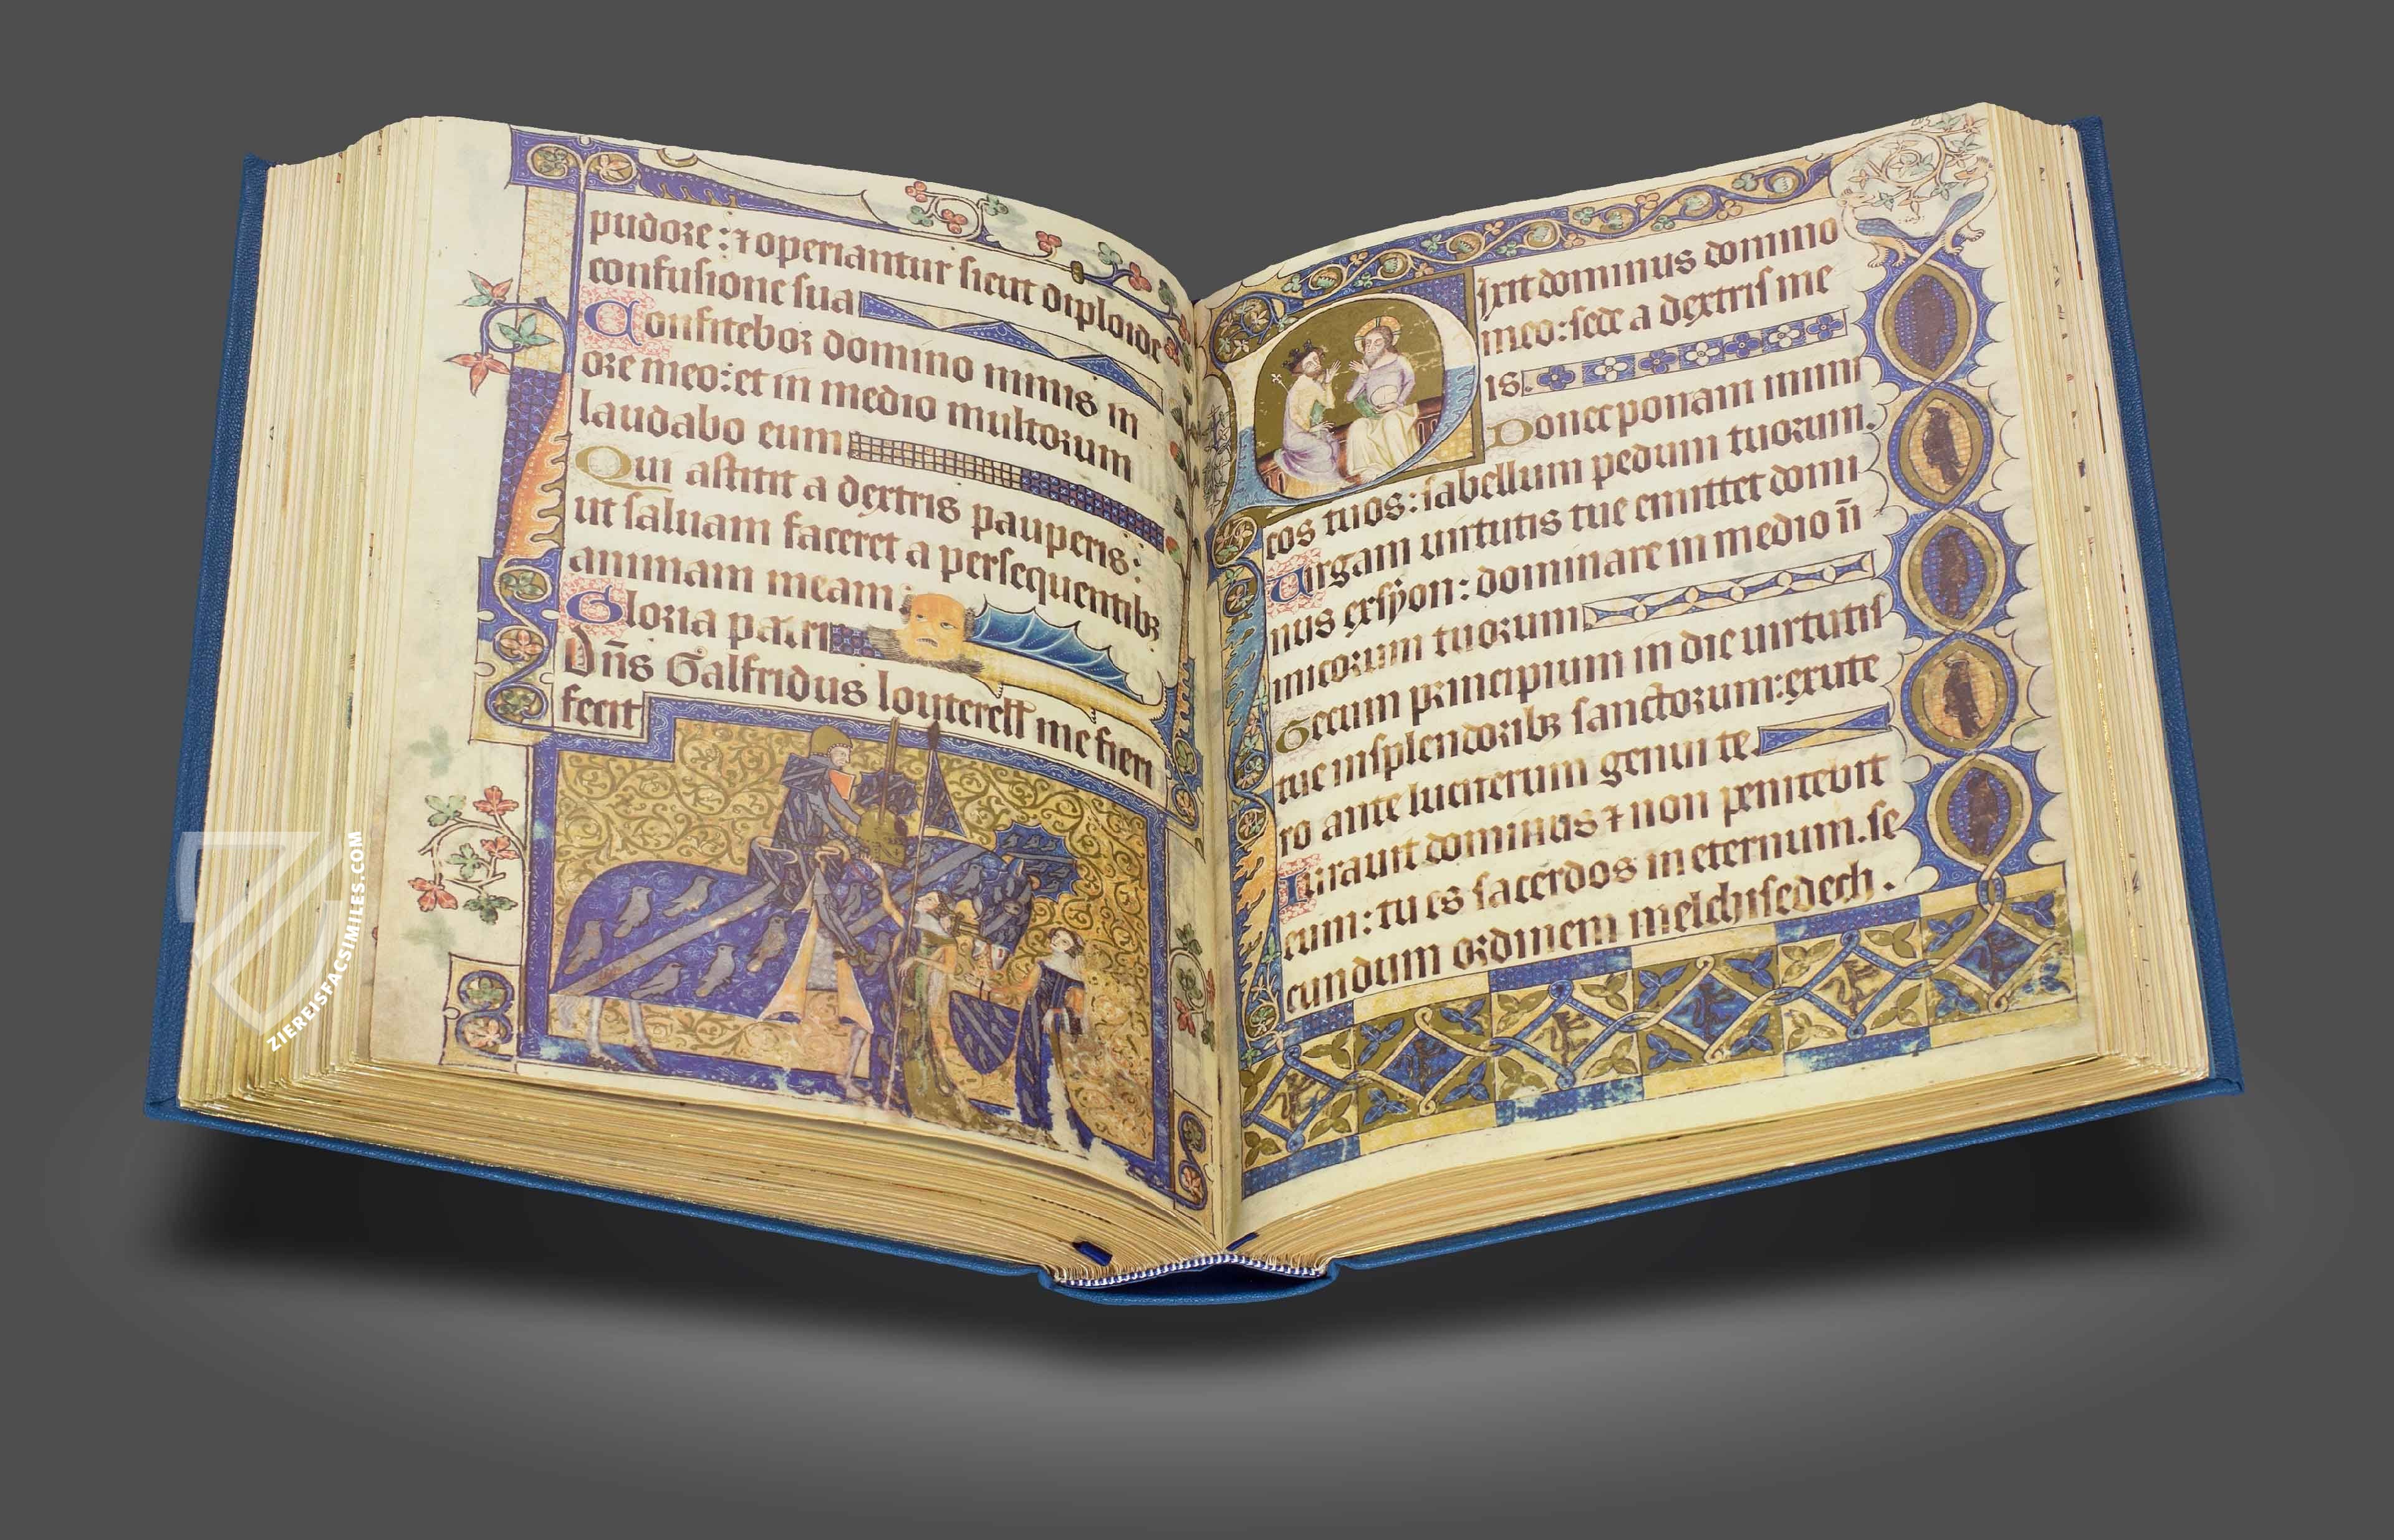 pudore: ⁊ operiantur sicut diploide
confusione sua
Confitebor domino nimis in
ore meo: et in medio multorum
laudabo eum
Qui astitit a dextris pauperis:
ut saluam faceret a persequentibꝫ
animam meam
Gloria patri
Dn̄s Galfridus louterell me fieri
fecit
ZIEREISFACSIMILES.COM
Dixit dominus domino
meo: sede a dextris me
is
Donec ponam inimi
cos tuos: scabellum pedum tuorum.
Uirgam uirtutis tue emittet domi
nus ex syon: dominare in medio in̄
micorum tuorum
Tecum principium in die uirtutis
tue in splendoribꝫ sanctorum: ex ute
ro ante luciferum genui te
Iurauit dominus ⁊ non penitebit
eum: tu es sacerdos in eternum. se
cundum ordinem melchisedech.